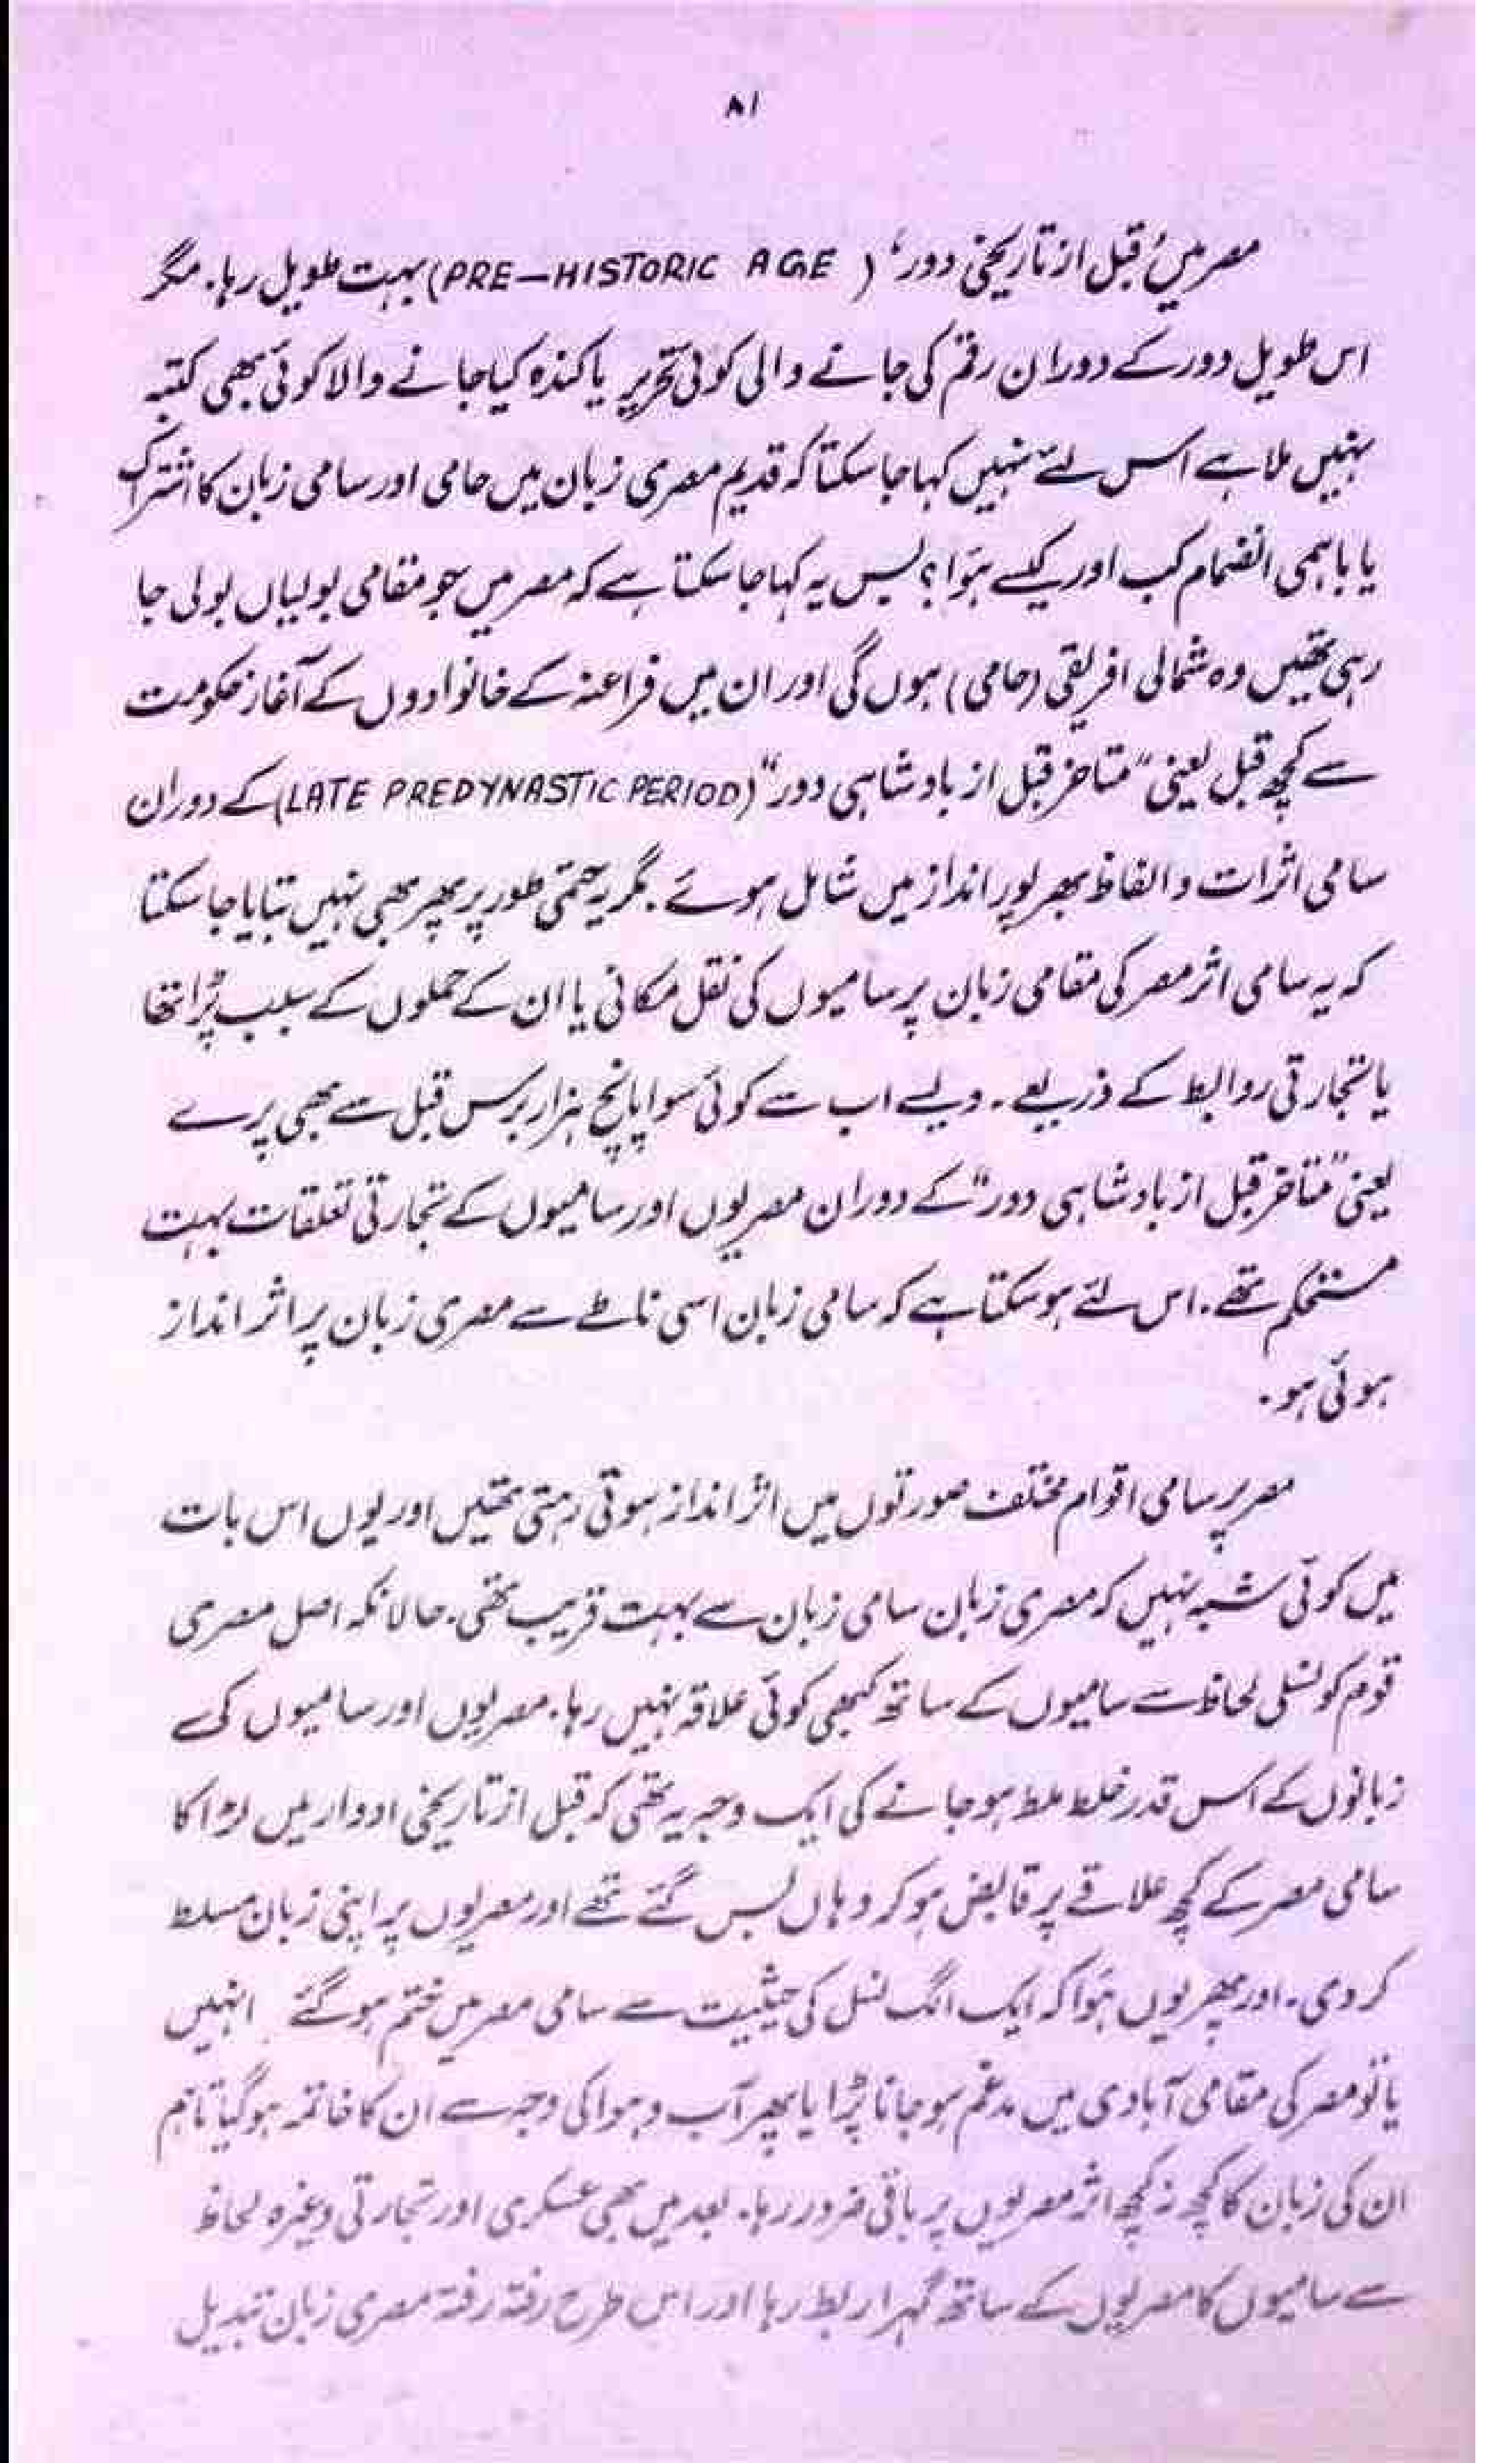 ۸۱
مصر میں ’قبل از تاریخی دور‘ (PRE-HISTORIC AGE) بہت طویل رہا۔ مگر
اس طویل دور کے دوران رقم کی جانے والی کوئی تحریر یا کندہ کیا جانے والا کوئی بھی کتبہ
نہیں ملا ہے اس لئے نہیں کہا جا سکتا کہ قدیم مصری زبان میں حامی اور سامی زبان کا اشتراک
یا باہمی انضمام کب اور کیسے ہوَا؟ بس یہ کہا جا سکتا ہے کہ مصر میں جو مقامی بولیاں بولی جا
رہی تھیں وہ شمالی افریقی (حامی) ہوں گی اور ان میں فراعنہ کے خانوادوں کے آغاز حکومت
سے کچھ قبل یعنی “متاخر قبل از بادشاہی دور” (LATE PREDYNASTIC PERIOD) کے دوران
سامی اثرات و الفاظ بھرپور انداز میں شامل ہوئے۔ مگر یہ حتمی طور پر پھر بھی نہیں بتایا جا سکتا
کہ یہ سامی اثر مصر کی مقامی زبان پر سامیوں کی نقل مکانی یا ان کے حملوں کے سبب پڑا تھا
یا تجارتی روابط کے ذریعے۔ ویسے اب سے کوئی سوا پانچ ہزار برس قبل سے بھی پرے
یعنی “متاخر قبل از بادشاہی دور” کے دوران مصریوں اور سامیوں کے تجارتی تعلقات بہت
مستحکم تھے۔ اس لئے ہو سکتا ہے کہ سامی زبان اسی ناطے سے مصری زبان پر اثر انداز
ہوئی ہو۔
مصر پر سامی اقوام مختلف صورتوں میں اثر انداز ہوتی رہتی تھیں اور یوں اس بات
میں کوئی شبہ نہیں کہ مصری زبان سامی زبان سے بہت قریب تھی۔ حالانکہ اصل مصری
قوم کو نسلی لحاظ سے سامیوں کے ساتھ کبھی کوئی علاقہ نہیں رہا۔ مصریوں اور سامیوں کی
زبانوں کے اس قدر خلط ملط ہو جانے کی ایک وجہ یہ تھی کہ قبل از تاریخی ادوار میں لڑاکا
سامی مصر کے کچھ علاقے پر قابض ہو کر وہاں بس گئے تھے اور مصریوں پر اپنی زبان مسلط
کر دی۔ اور پھر یوں ہوَا کہ ایک الگ نسل کی حیثیت سے سامی مصر میں ختم ہو گئے۔ انہیں
یا تو مصر کی مقامی آبادی میں مدغم ہو جانا پڑا یا پھر آب و ہوا کی وجہ سے ان کا خاتمہ ہو گیا تاہم
ان کی زبان کا کچھ نہ کچھ اثر مصریوں پر باقی ضرور رہا۔ بعد میں بھی عسکری اور تجارتی وغیرہ لحاظ
سے سامیوں کا مصریوں کے ساتھ گہرا ربط رہا اور اس طرح رفتہ رفتہ مصری زبان تبدیل